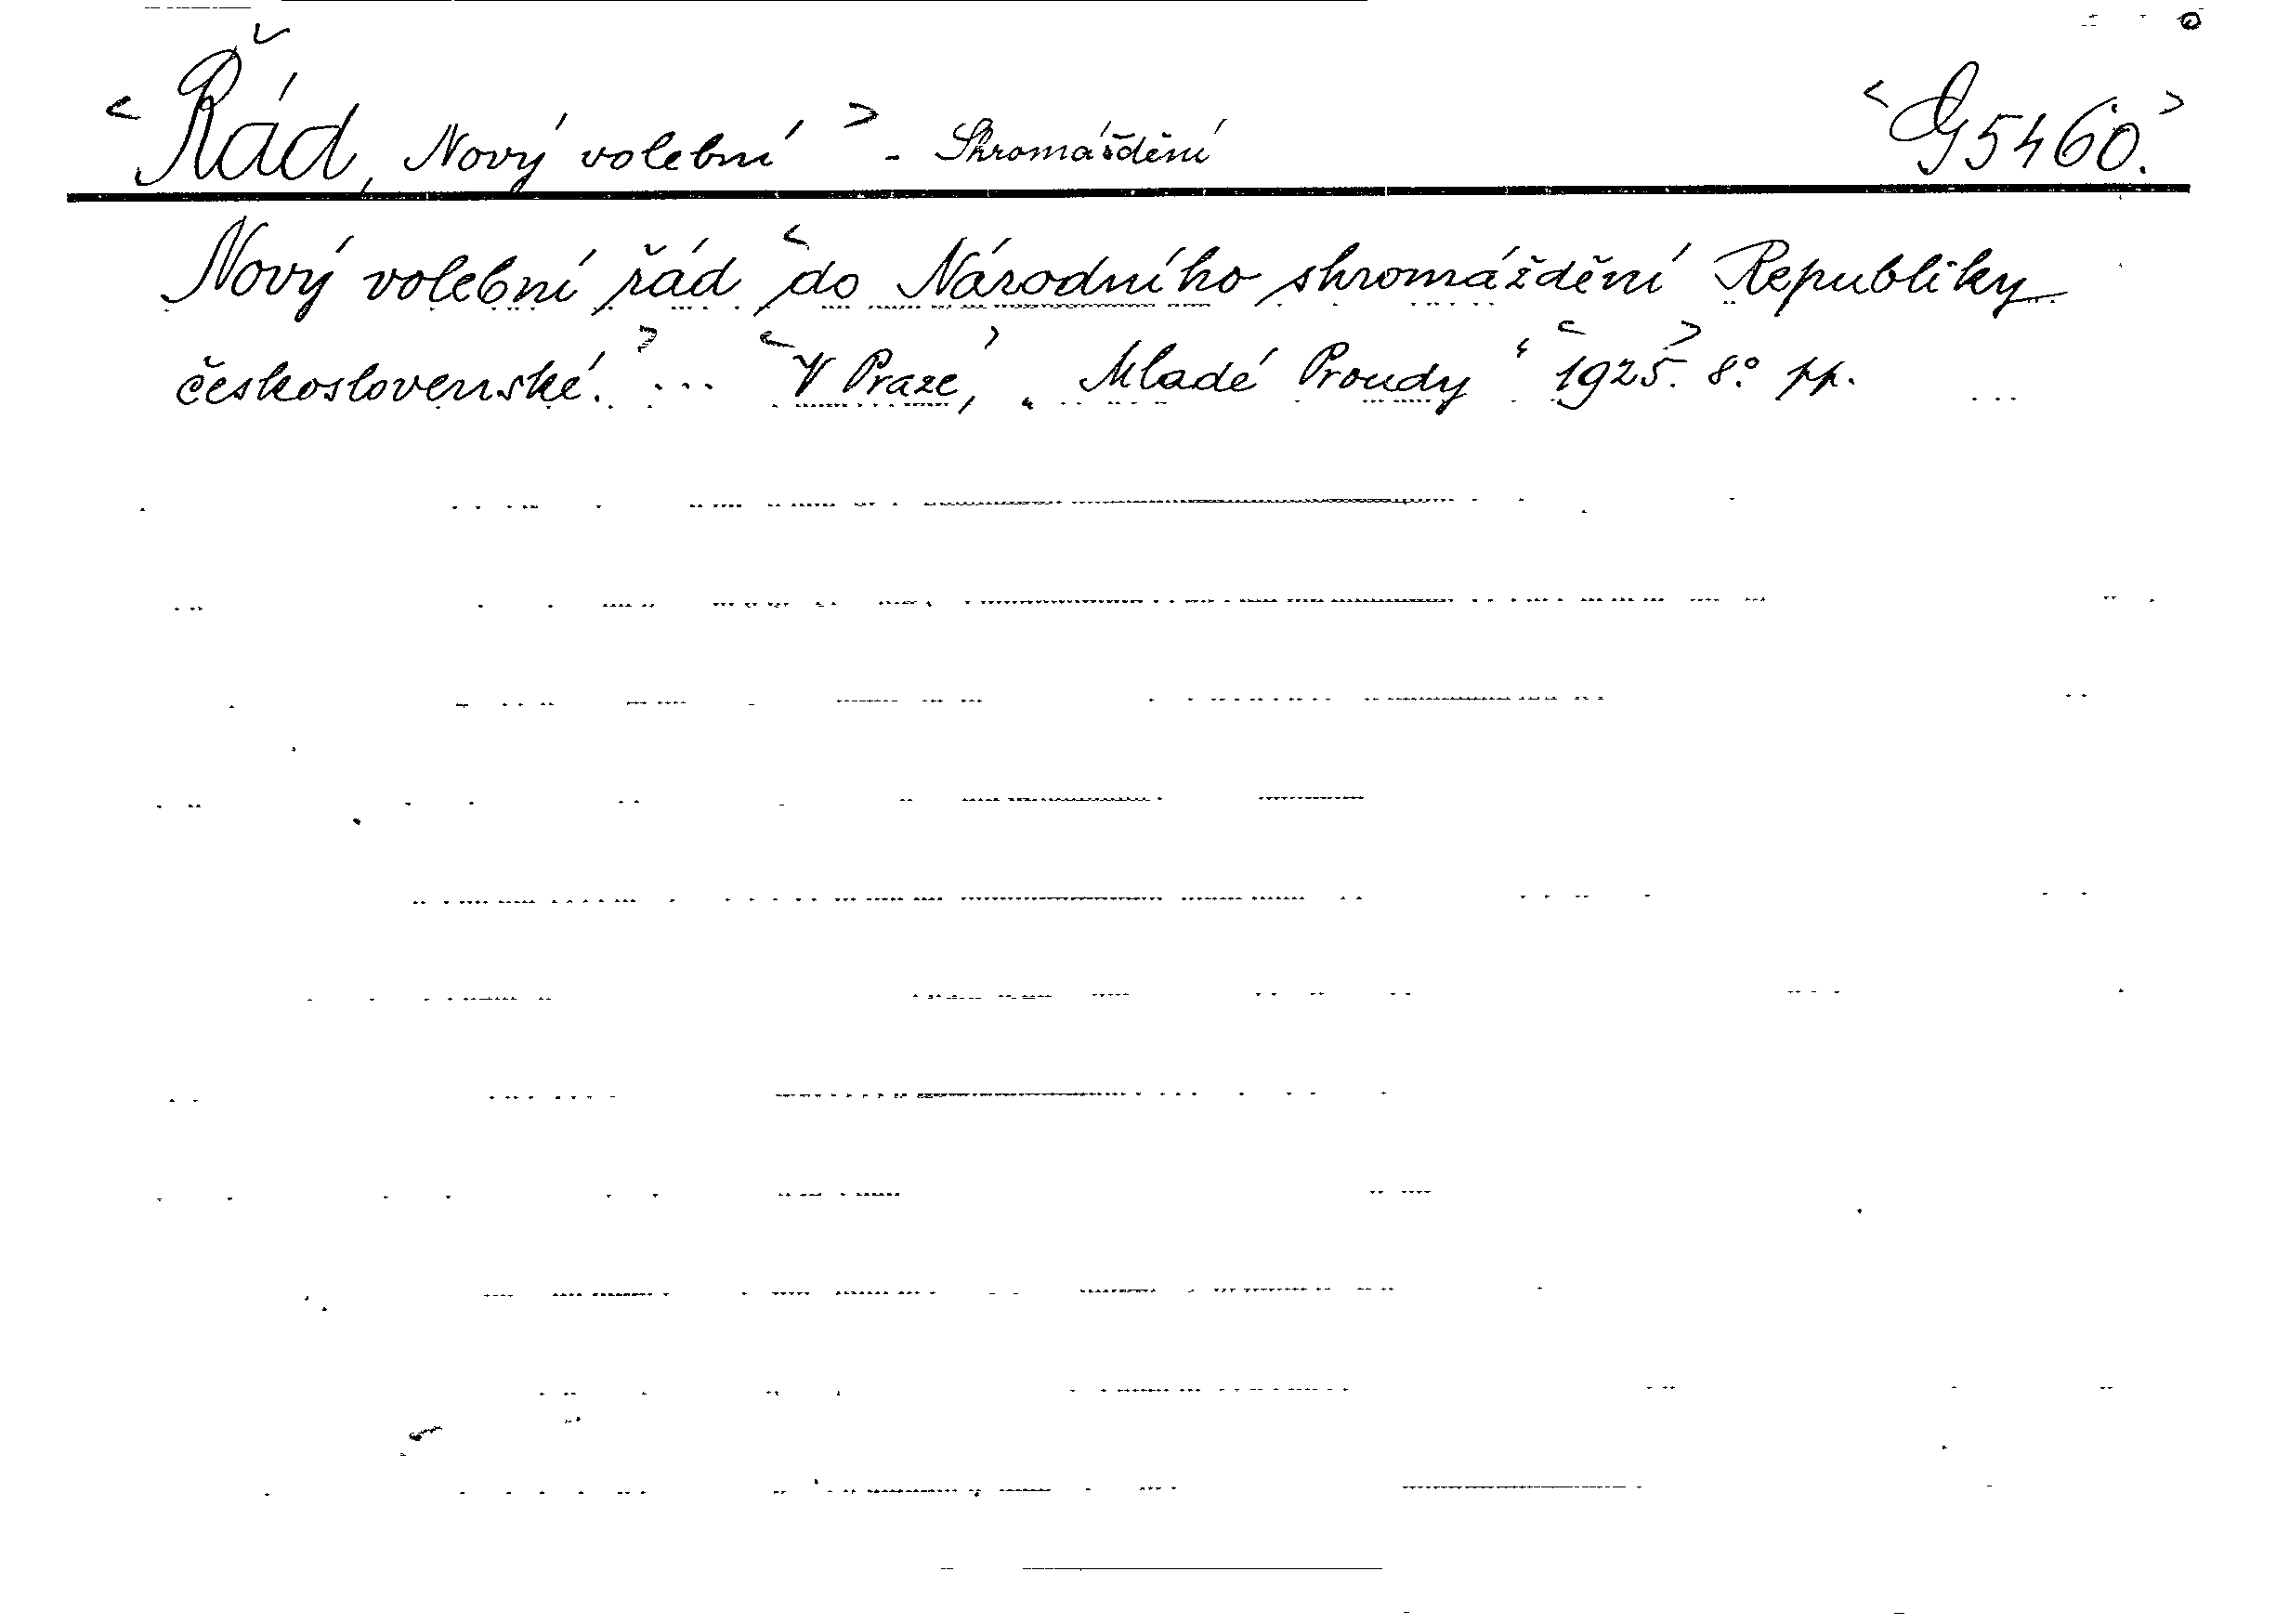 <Řád, Nový volební> - Shromáždění <G 5460.>
Nový volební řád <do Národního shromáždění Republiky
československé.> ... <V Praze,> "Mladé Proudy" <1925.> 8° pp. ...